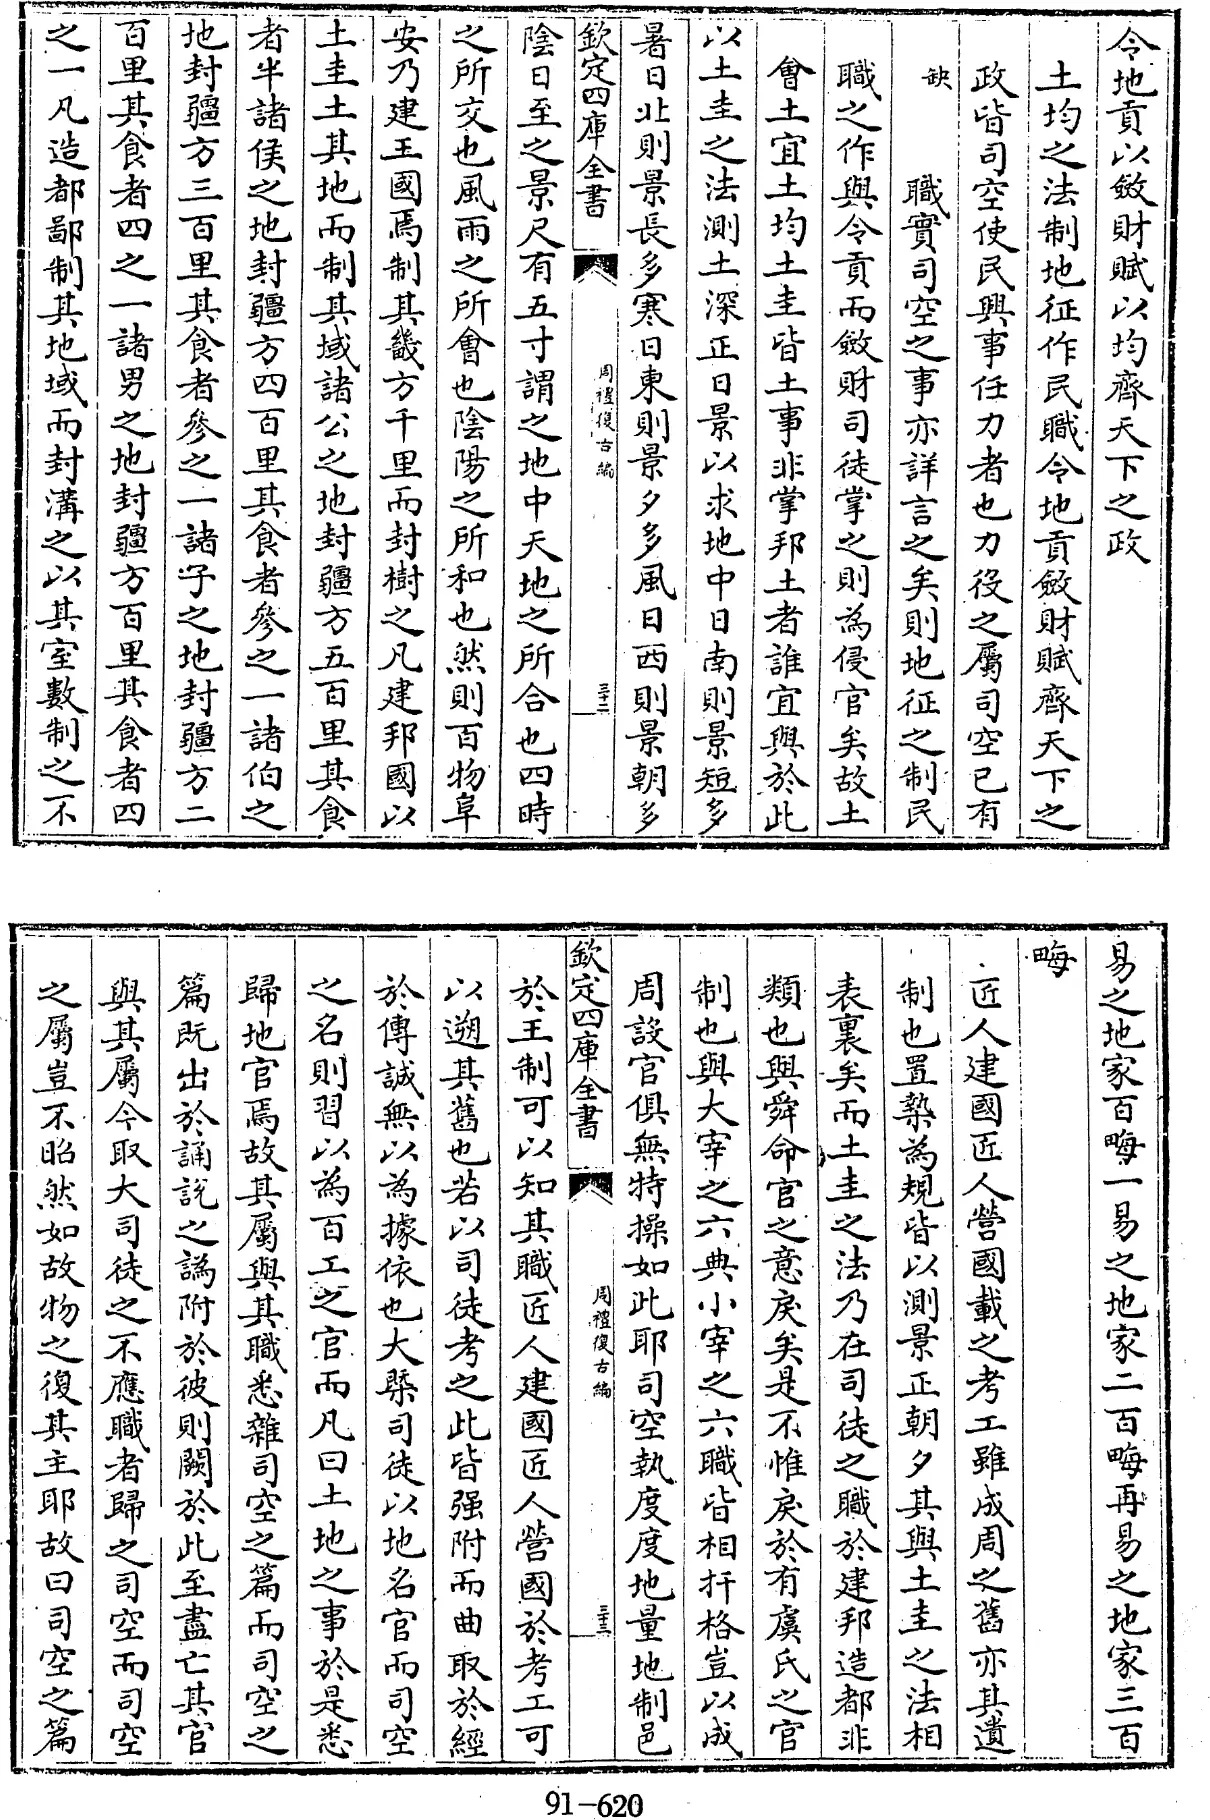 令地貢以斂財賦以均齊天下之政
土均之法制地征作民職令地貢斂財賦齊天下之
政皆司空使民興事任力者也力役之屬司空已有
缺 職實司空之事亦詳言之矣則地征之制民
職之作與令貢而斂財司徒掌之則為侵官矣故土
會土宜土均土圭皆土事非掌邦土者誰宜與於此
以土圭之法測土深正日景以求地中日南則景短多
暑日北則景長多寒日東則景夕多風日西則景朝多
欽定四庫全書
周禮復古編
三十二
陰日至之景尺有五寸謂之地中天地之所合也四時
之所交也風雨之所會也陰陽之所和也然則百物阜
安乃建王國焉制其畿方千里而封樹之凡建邦國以
土圭土其地而制其域諸公之地封疆方五百里其食
者半諸侯之地封疆方四百里其食者參之一諸伯之
地封疆方三百里其食者參之一諸子之地封疆方二
百里其食者四之一諸男之地封疆方百里其食者四
之一凡造都鄙制其地域而封溝之以其室數制之不
易之地家百畮一易之地家二百畮再易之地家三百
畮
匠人建國匠人營國載之考工雖成周之舊亦其遺
制也置槷為規皆以測景正朝夕其與土圭之法相
表裏矣而土圭之法乃在司徒之職於建邦造都非
類也與舜命官之意戾矣是不惟戾於有虞氏之官
制也與大宰之六典小宰之六職皆相扞格豈以成
周設官俱無特操如此耶司空執度度地量地制邑
欽定四庫全書
周禮復古編
三十三
於王制可以知其職匠人建國匠人營國於考工可
以遡其舊也若以司徒考之此皆强附而曲取於經
於傳誠無以為據依也大槩司徒以地名官而司空
之名則習以為百工之官而凡曰土地之事於是悉
歸地官焉故其屬與其職悉雜司空之篇而司空之
篇既出於誦說之譌附於彼則闕於此至盡亡其官
與其屬今取大司徒之不應職者歸之司空而司空
之屬豈不昭然如故物之復其主耶故曰司空之篇
91-620